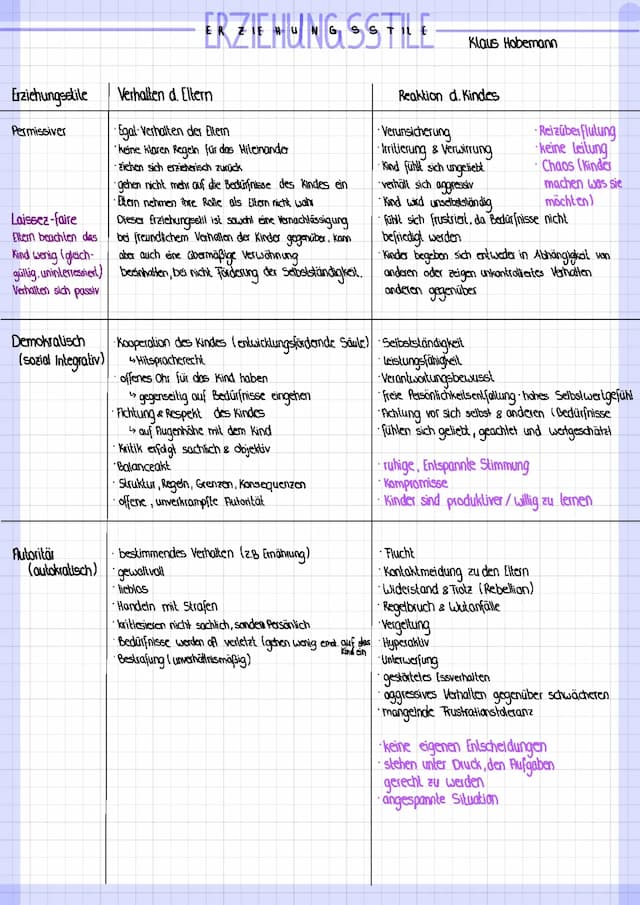 ERZIEHUNGSSTILE
ERZIEHUNGSSTILE
Klaus Habemann
Erziehungsstile
Verhalten d. Eltern
Reaktion d. Kindes
Permissiver
Laissez-faire
Eltern beachten das
Kind wenig (gleich-
gültig, uninteressiert)
Verhalten sich passiv
· Egal-Verhalten der Eltern
· keine klaren Regeln für das Miteinander
· ziehen sich erzieherisch zurück
· gehen nicht mehr auf die Bedürfnisse des Kindes ein
· Eltern nehmen ihre Rolle als Eltern nicht wahr
Dieser Erziehungsstil ist sowohl eine Vernachlässigung
bei freundlichem Verhalten der Kinder gegenüber, kann
aber auch eine übermäßige Verwöhnung
beeinhalten, bei nicht Förderung der Selbstständigkeit.
· Verunsicherung
· Irritierung & Verwirrung
· Kind fühlt sich ungeliebt
· verhält sich aggressiv
· Kind wird unselbstständig
· fühlt sich frustriert, da Bedürfnisse nicht
befriedigt werden
· Kinder begeben sich entweder in Abhängigkeit von
anderen oder zeigen unkontrolliertes Verhalten
anderen gegenüber
· Reizüberflutung
· keine Leitung
· Chaos (Kinder
machen was sie
möchten)
Demokratisch
(sozial Integrativ)
· Kooperation des Kindes (entwicklungsfördernde Säule)
↳ Mitspracherecht
· offenes Ohr für das Kind haben
↳ gegenseitig auf Bedürfnisse eingehen
· Achtung & Respekt des Kindes
↳ auf Augenhöhe mit dem Kind
· Kritik erfolgt sachlich & objektiv
· Balanceakt
· Struktur, Regeln, Grenzen, Konsequenzen
· offene, unverkrampfte Autorität
· Selbstständigkeit
· Leistungsfähigkeit
· Verantwortungsbewusst
· freie Persönlichkeitsentfaltung · hohes Selbstwertgefühl
· Achtung vor sich selbst & anderen (Bedürfnisse
· fühlen sich geliebt, geachtet und wertgeschätzt
· ruhige, Entspannte Stimmung
· Kompromisse
· Kinder sind produktiver / willig zu lernen
Autoritär
(autokratisch)
· bestimmendes Verhalten (z.B Ernährung)
· gewaltvoll
· lieblos
· Handeln mit Strafen
· kritiesieren nicht sachlich, sondern Persönlich
· Bedürfnisse werden oft verletzt (gehen wenig emot. auf das
Kind ein
· Bestrafung (unverhältnismäßig)
· Flucht
· Kontaktmeidung zu den Eltern
· Widerstand & Trotz (Rebellion)
· Regelbruch & Wutanfälle
· Vergeltung
· Hyperaktiv
· Unterwerfung
· gestörteles Essverhalten
· aggressives Verhalten gegenüber schwächeren
· mangelnde Frustrationstoleranz
· keine eigenen Entscheidungen
· stehen unter Druck, den Aufgaben
gerecht zu werden
· angespannte Situation